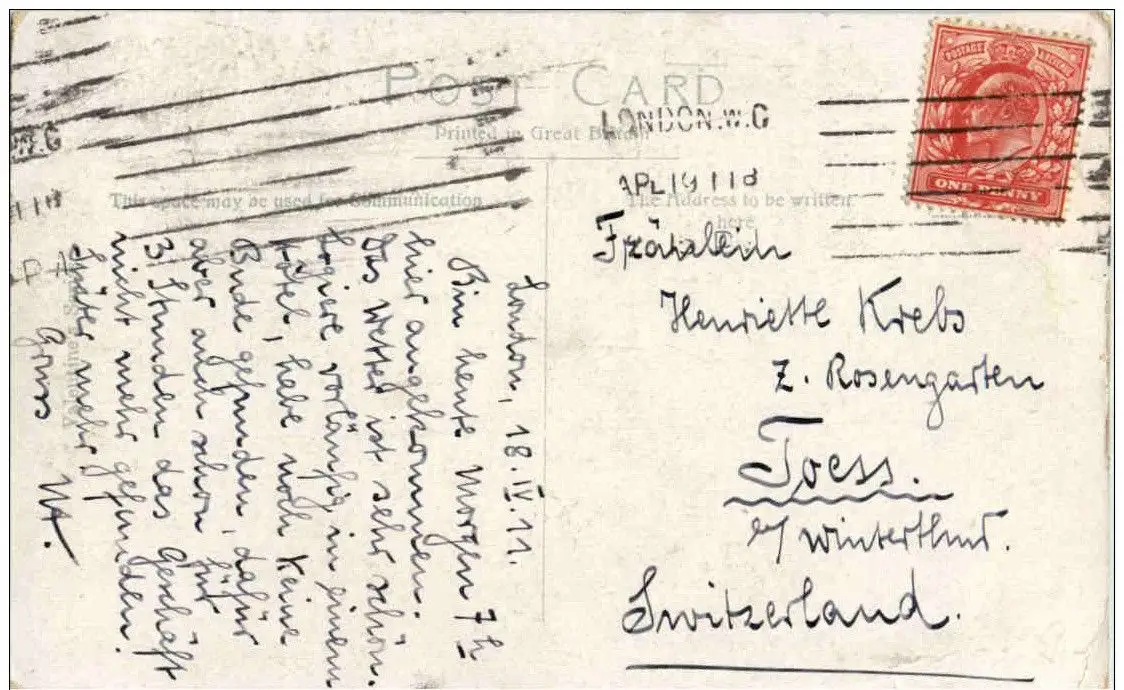 POST CARD
Printed in Great Britain
This space may be used for Communication
The Address to be written
here
LONDON.W.C
APL 19 11
POSTAGE REVENUE
ONE PENNY
London, 18.IV.11.
Bin heute Morgen 7h
hier angekommen.
Das Wetter ist sehr schön.
Logiere vorläufig in einem
Hôtel, habe noch keine
Bude gefunden, dafür
aber auch schon für
3 Stunden das Geschäft
nicht mehr gefunden.
Später mehr
Gruss
Fräulein
Henriette Krebs
z. Rosengarten
Toess.
b/ Winterthur.
Switzerland.